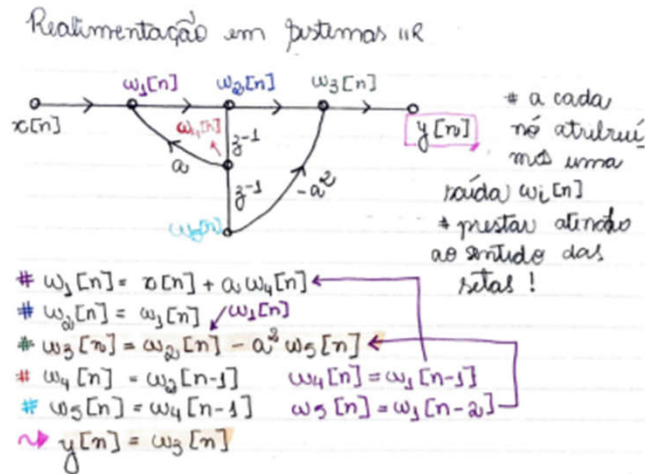 Realimentação em sistemas IIR
w1[n] w2[n] w3[n]
x[n] w4[n] z^-1 y[n]
a z^-1 -a^2
w5[n]
* a cada
nó atribuí
mos uma
saída wi[n]
* prestar atenção
ao sentido das
setas!
# w1[n] = x[n] + a w4[n]
# w2[n] = w1[n] w1[n]
# w3[n] = w2[n] - a^2 w5[n]
# w4[n] = w2[n-1] w4[n] = w1[n-1]
# w5[n] = w4[n-1] w5[n] = w1[n-2]
y[n] = w3[n]